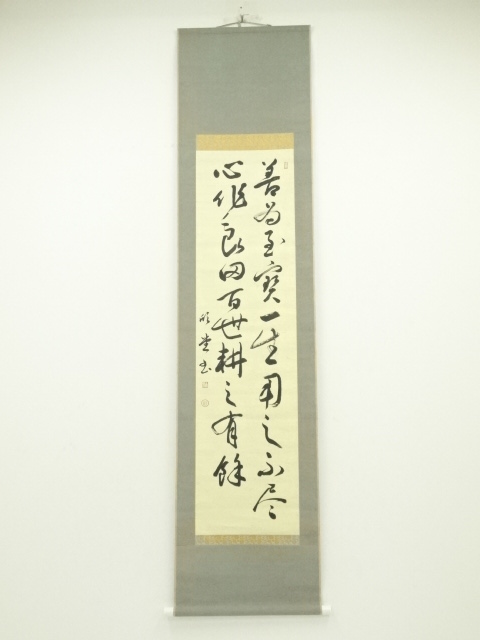 善為至寶一生用之不尽
心作良田百世耕之有餘
堂書